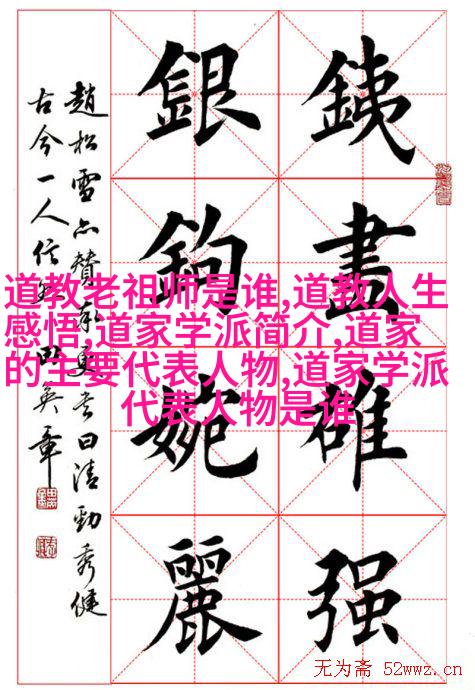 道教老祖师是谁,道教人生
感悟,道家学派简介,道家
的主要代表人物,道家学派
代表人物是谁
銕畫雄强
銀鉤婉麗
趙松雪亦贊曰清勁秀健
古今一人信英章
无为斋 52wwz.cn